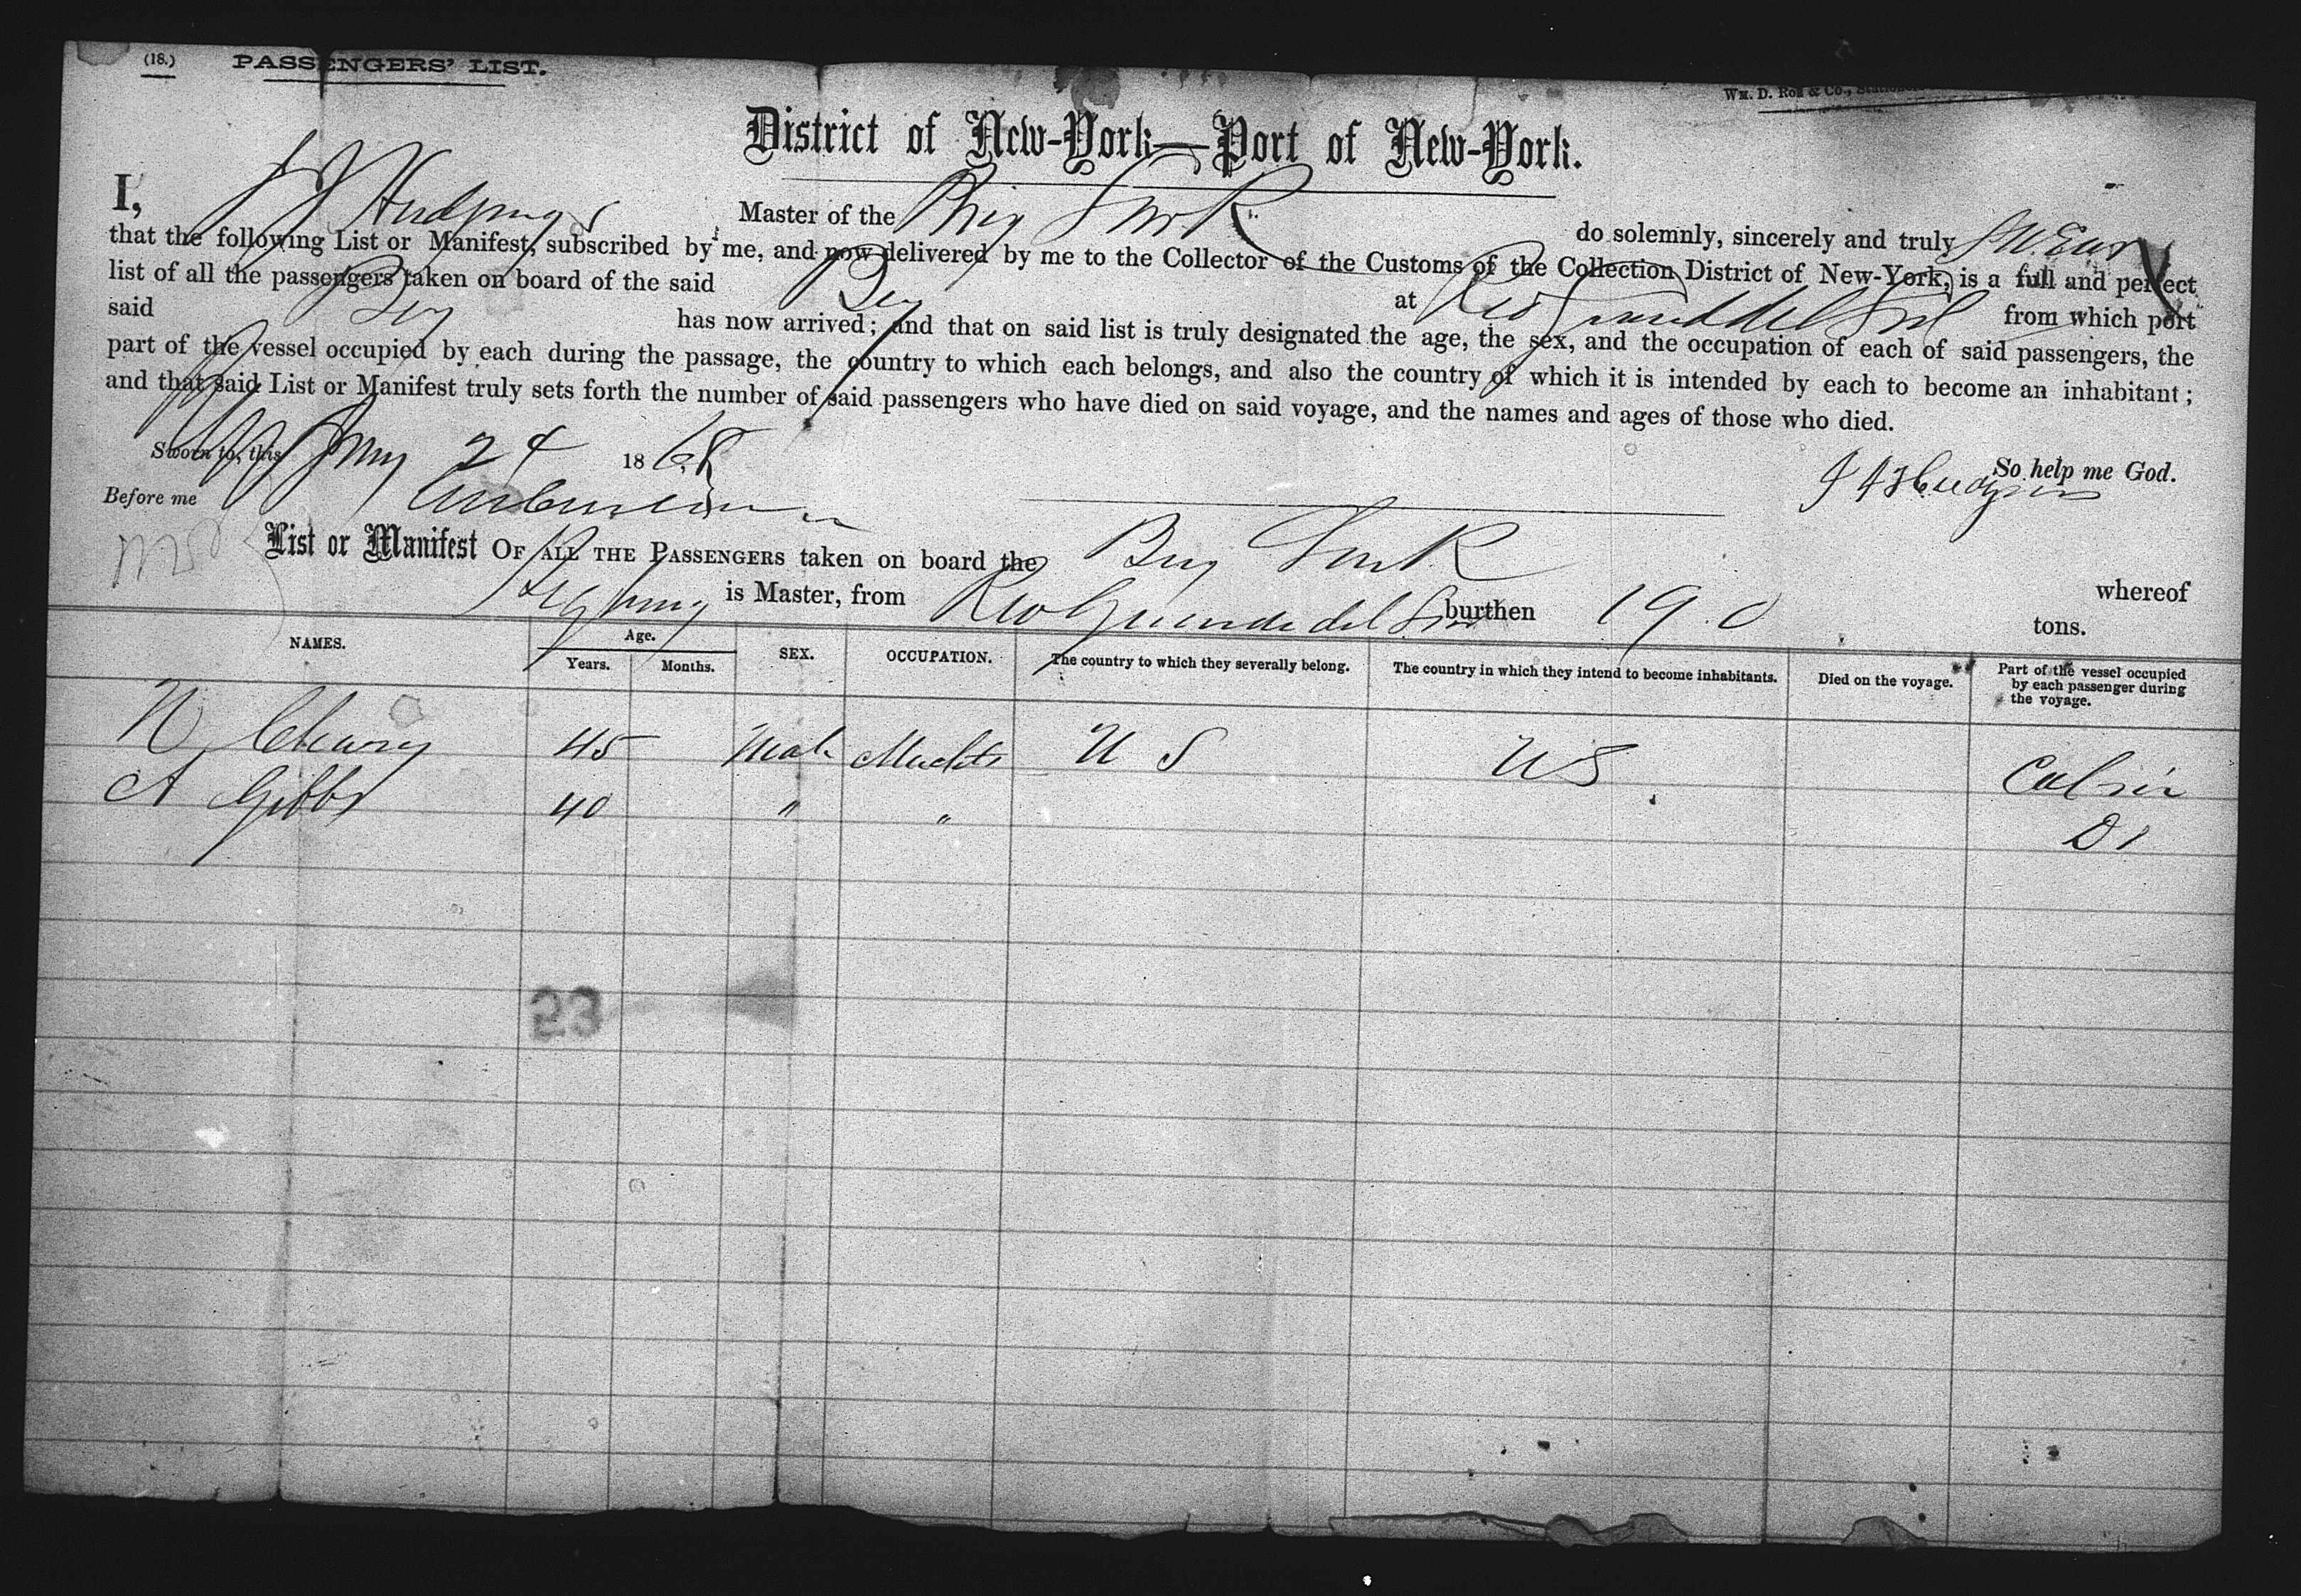 (18.) PASSENGERS' LIST.
Wm. D. Roe & Co.,
District of New-York—Port of New-York.
I, Master of the Brig do solemnly, sincerely and truly swear
that the following List or Manifest, subscribed by me, and now delivered by me to the Collector of the Customs of the Collection District of New-York, is a full and perfect
list of all the passengers taken on board of the said Brig at Rio Grande del Sul from which port
said Brig has now arrived; and that on said list is truly designated the age, the sex, and the occupation of each of said passengers, the
part of the vessel occupied by each during the passage, the country to which each belongs, and also the country of which it is intended by each to become an inhabitant;
and that said List or Manifest truly sets forth the number of said passengers who have died on said voyage, and the names and ages of those who died.
Sworn to, this 24 1868 So help me God.
Before me
List or Manifest OF ALL THE PASSENGERS taken on board the Brig whereof
is Master, from Rio Grande del Sul burthen 190 tons.
NAMES. Age. SEX. OCCUPATION. The country to which they severally belong. The country in which they intend to become inhabitants. Died on the voyage. Part of the vessel occupied by each passenger during the voyage.
Years. Months.
45 Male U S U S Cabin
A Gibbs 40 " " Do
23